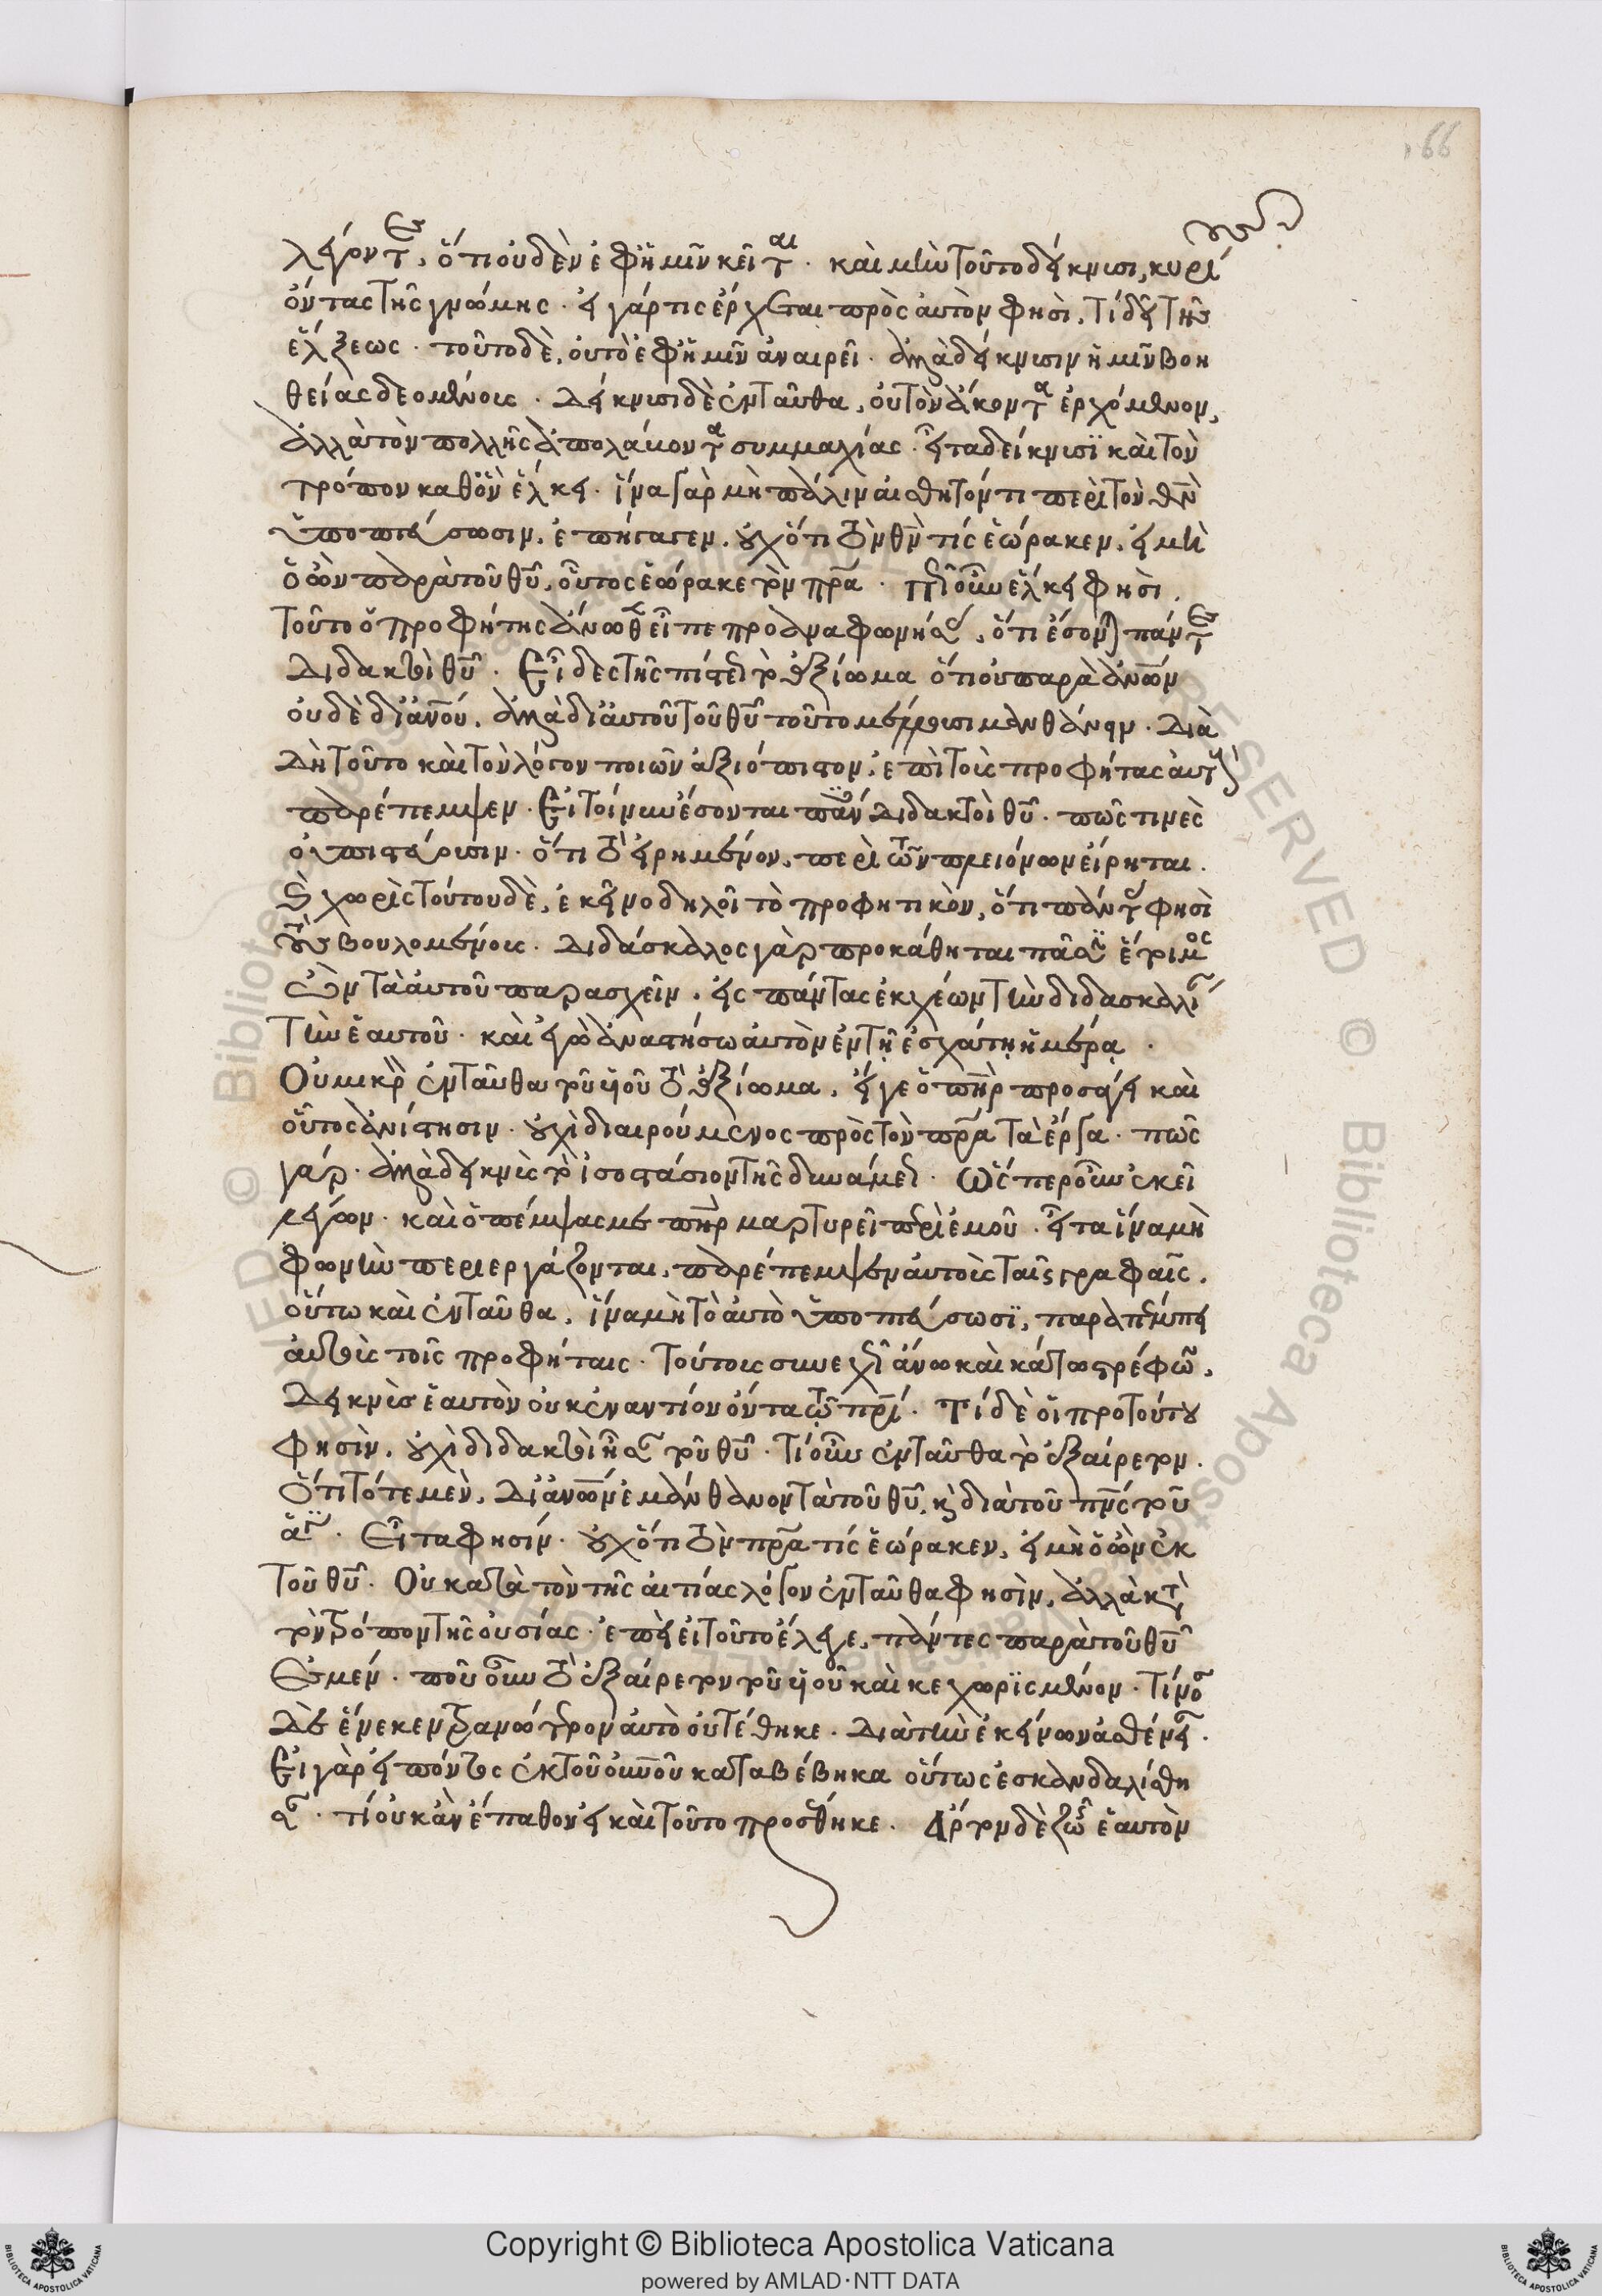 166
λέγοντες, ὅτι οὐδὲν ἐφ' ἡμῖν κεῖται. καὶ μὴν τοῦτο δείκνυσι, κυρί
οντας τῆς γνώμης. εἰ γάρ τις ἔρχεται πρὸς αὐτὸν φησὶ, τί δεῖ τῆς
ἕλξεως. τοῦτο δὲ, οὐ τὸ ἐφ' ἡμῖν ἀναιρεῖ. ἀλλὰ δείκνυσιν ἡμῖν βοη
θείας δεομένοις. Δείκνυσι δὲ ἐνταῦθα, οὐ τὸν ἄκοντα ἐρχόμενον,
ἀλλὰ τὸν πολλῆς ἀπολαύοντα συμμαχίας. εἶτα δείκνυσι καὶ τὸν
τρόπον καθ' ὃν ἕλκει. ἵνα γὰρ μὴ πάλιν αἰσθητόν τι περὶ τὸν θν
ὑποπτεύσωσιν, ἐπήγαγεν. οὐχ ὅτι τὸν θν τίς ἑώρακεν, εἰ μὴ
ὁ ὢν παρὰ τοῦ θυ, οὗτος ἑώρακε τὸν πρα. πῶς οὖν ἕλκει φησὶ.
Τοῦτο ὁ προφήτης ἄνωθεν εἶπε προαναφωνήσας, ὅτι ἔσονται πάντες
Διδακτοὶ θυ. Εἶδες τῆς πίστεως τὸ ἀξίωμα ὅτι οὐ παρὰ ἀνων
οὐδὲ δι' ἀνου, ἀλλὰ δι' αὐτοῦ τοῦ θυ τοῦτο μανθάνειν. Διὰ
Δὴ τοῦτο καὶ τὸν λόγον ποιῶν ἀξιόπιστον, ἐπὶ τοὺς προφήτας αὐτοὺς
παρέπεμψεν. Εἰ τοίνυν ἔσονται πάντες Διδακτοὶ θυ. πῶς τινὲς
οὐ πιστεύουσιν. ὅτι τὸ εἰρημένον, περὶ τῶν πλειόνων εἴρηται.
χωρὶς τούτου δὲ, ἐκεῖνο δηλοῖ τὸ προφητικὸν, ὅτι πάντες φησὶ
τοῖς βουλομένοις. Διδάσκαλος γὰρ προκάθηται πᾶσιν ἕτοιμος
ὢν τὰ αὐτοῦ παρασχεῖν, εἰς πάντας ἐκχέων τὴν διδασκαλίαν
Τὴν ἑαυτοῦ. καὶ ἐγὼ ἀναστήσω αὐτὸν ἐν τῇ ἐσχάτῃ ἡμέρᾳ.
Οὐ μικρὸν ἐνταῦθα τοῦ υἱοῦ τὸ ἀξίωμα, εἴγε ὁ πηρ προσάγει καὶ
οὗτος ἀνίστησιν. οὐχὶ διαιρούμενος πρὸς τὸν πρα τὰ ἔργα. πῶς
γάρ. ἀλλὰ δεικνὺς τὸ ἰσοστάσιον τῆς δυνάμεως. Ὥσπερ οὖν ἐκεῖ
λέγων. καὶ ὁ πέμψας με πηρ μαρτυρεῖ περὶ ἐμοῦ. εἶτα ἵνα μὴ
φωνὴν περιεργάζονται, παρέπεμψεν αὐτοὺς ταῖς γραφαῖς.
οὕτω καὶ ἐνταῦθα, ἵνα μὴ τὸ αὐτὸ ὑποπτεύσωσι, παραπέμπει
αὐτοὺς τοῖς προφήταις. Τούτοις συνεχῶς ἄνω καὶ κάτω στρέφων,
Δεικνὺς ἑαυτὸν οὐκ ἐναντίον ὄντα τῷ πρι. Τί δὲ οἱ πρὸ τούτου
φησὶν, οὐχὶ διδακτοὶ ἦσαν τοῦ θυ. τί οὖν ἐνταῦθα τὸ ἐξαίρετον.
Ὅτι τότε μὲν, Δι' ἀνων ἐμάνθανον τὰ τοῦ θυ, νῦν διὰ τοῦ πνς τοῦ
ἁγίου. Εἶτα φησίν. οὐχ ὅτι τὸν πρα τίς ἑώρακεν, εἰ μὴ ὁ ὢν ἐκ
Τοῦ θυ. Οὐ κατὰ τὸν τῆς αἰτίας λόγον ἐνταῦθα φησὶν, ἀλλὰ κατὰ
τὸν τρόπον τῆς οὐσίας. ἐπεὶ εἰ τοῦτο ἔλεγε, πάντες παρὰ τοῦ θυ
Ἐσμέν. ποῦ οὖν τὸ ἐξαίρετον τοῦ υἱοῦ καὶ κεχωρισμένον. Τίνος
Δὲ ἕνεκεν τρανώτερον αὐτὸ οὐ τέθηκε. Διὰ τὴν ἐκείνων ἀσθένειαν.
Εἰ γὰρ εἰπόντος ἐκ τοῦ οὐνου καταβέβηκα οὕτως ἐσκανδαλίσθη
σαν. τί οὐκ ἂν ἔπαθον εἰ καὶ τοῦτο προσέθηκε. Ἄρτον δὲ ζωῆς ἑαυτὸν
Copyright © Biblioteca Apostolica Vaticana
powered by AMLAD·NTT DATA